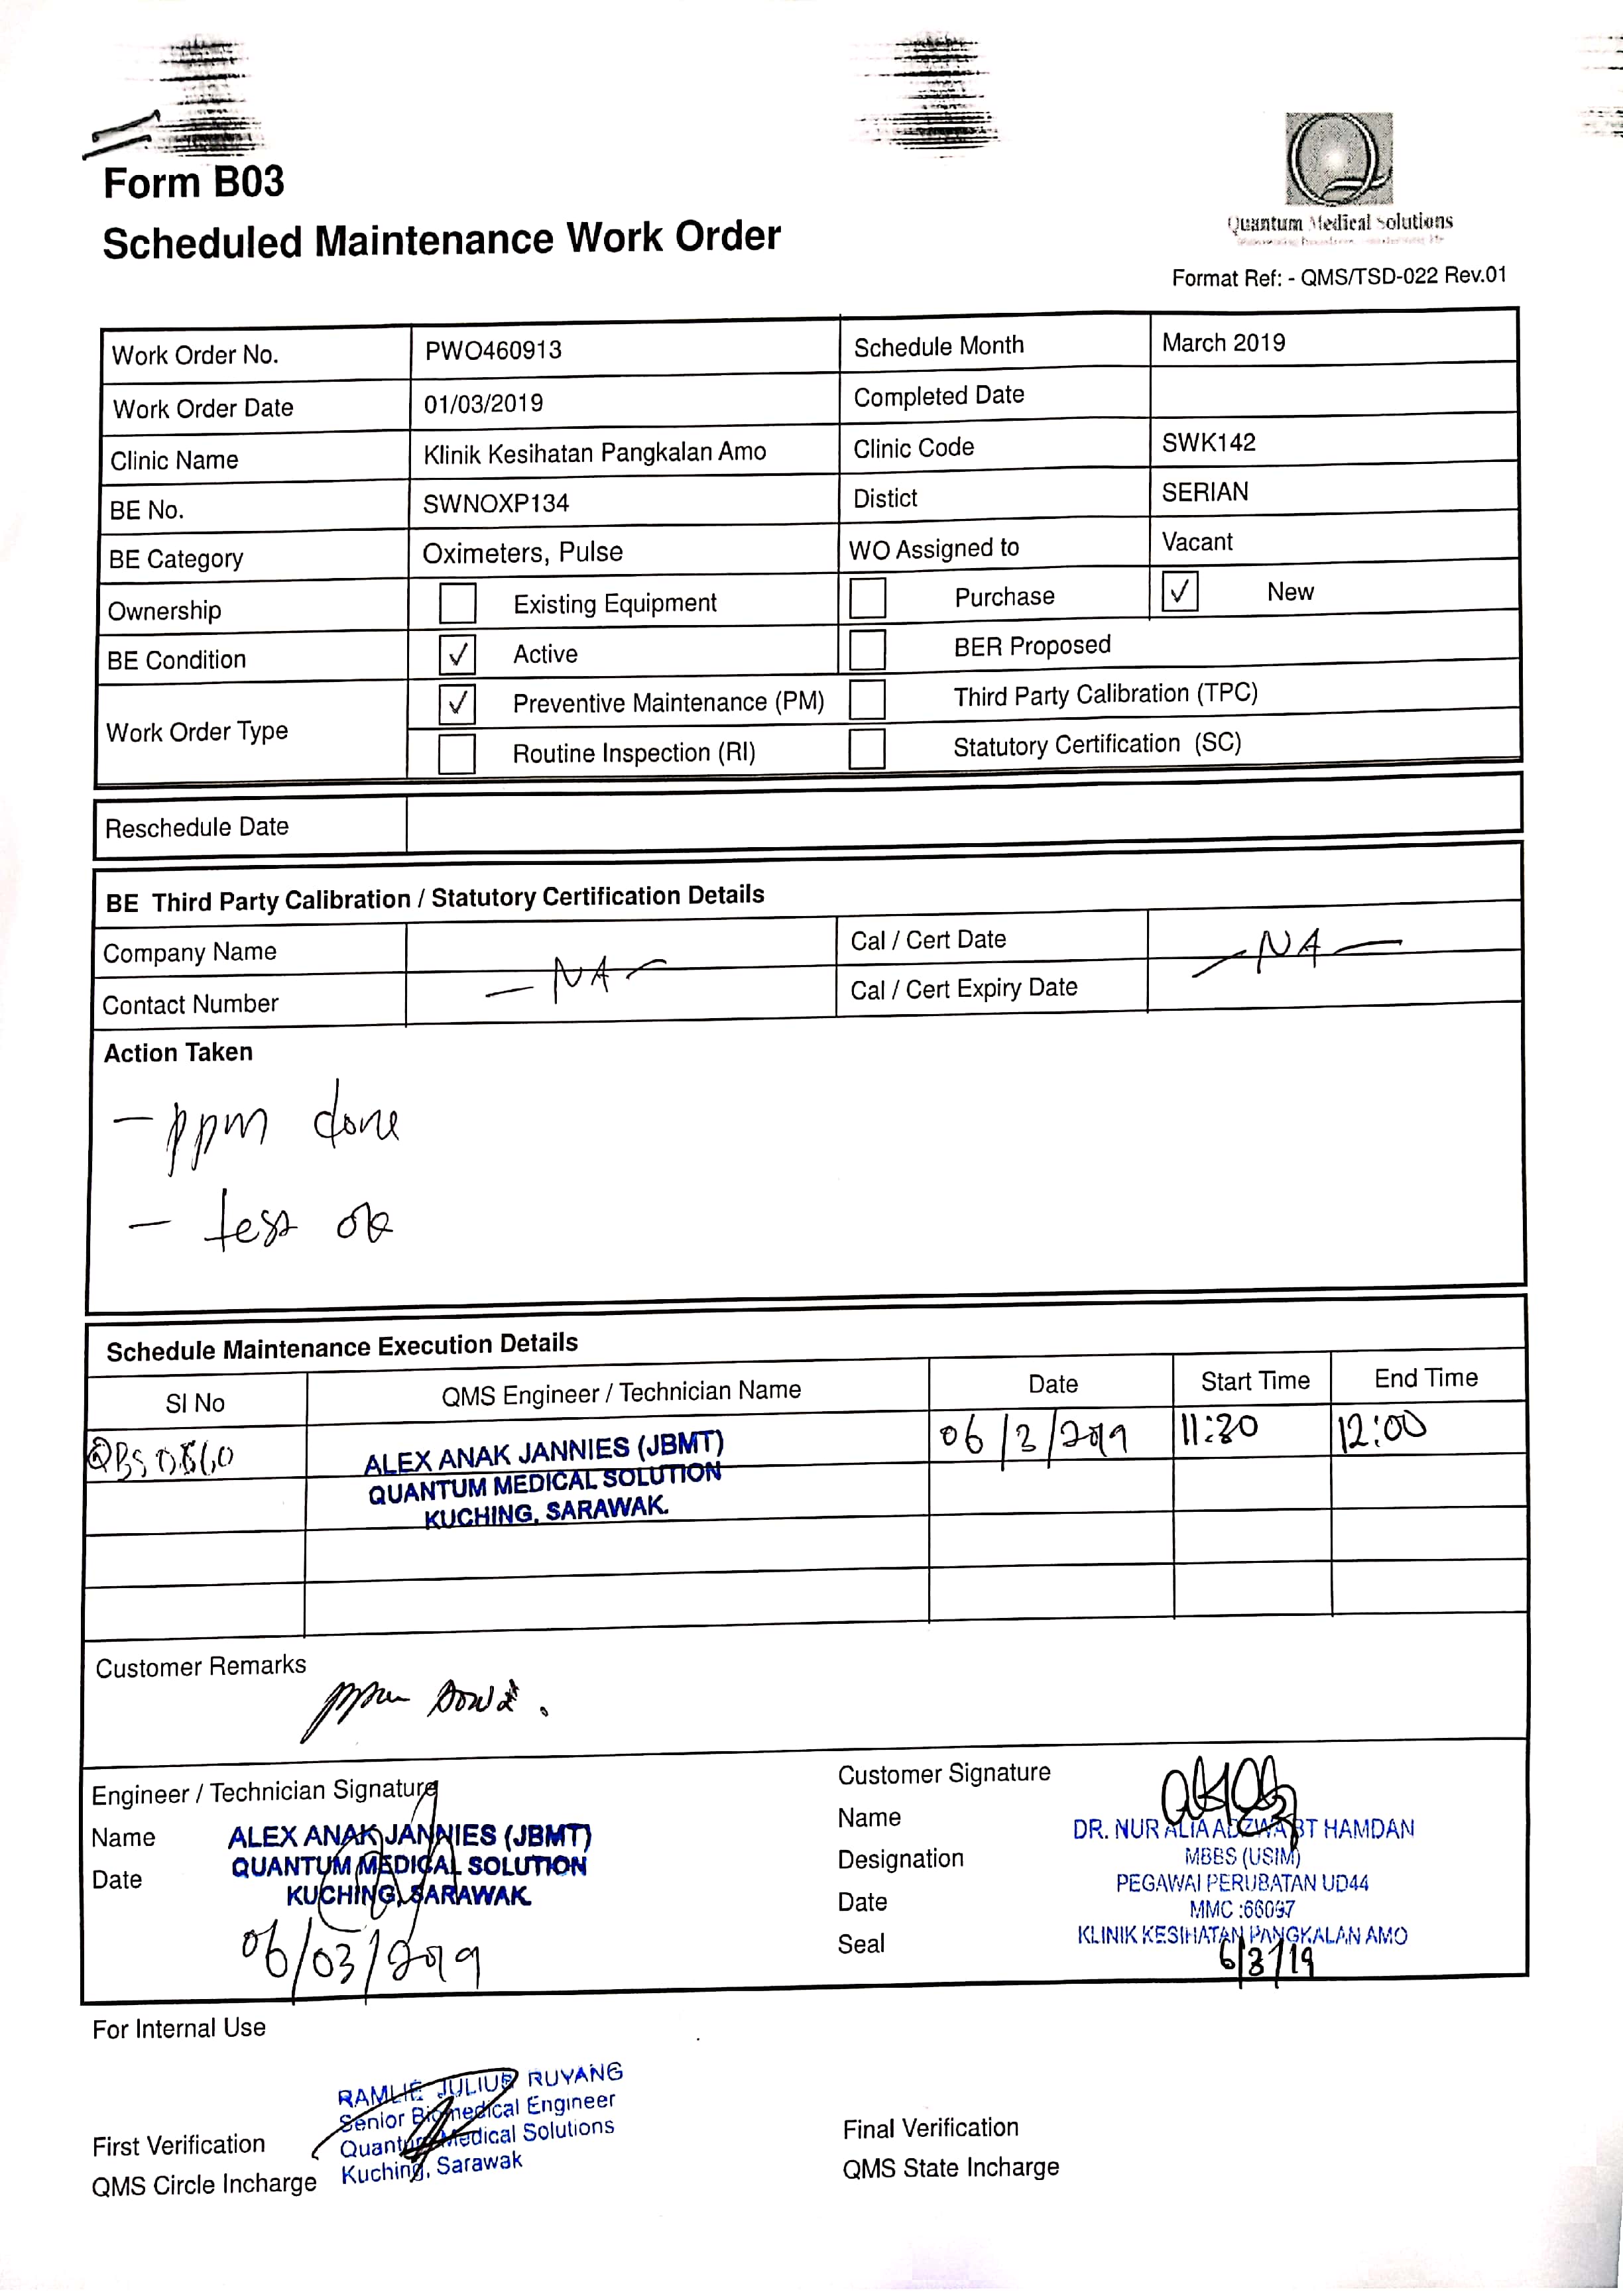 Form B03
Scheduled Maintenance Work Order
Quantum Medical Solutions
Format Ref: - QMS/TSD-022 Rev.01
Work Order No. PWO460913 Schedule Month March 2019
Work Order Date 01/03/2019 Completed Date
Clinic Name Klinik Kesihatan Pangkalan Amo Clinic Code SWK142
BE No. SWNOXP134 Distict SERIAN
BE Category Oximeters, Pulse WO Assigned to Vacant
Ownership Existing Equipment Purchase ✓ New
BE Condition ✓ Active BER Proposed
Work Order Type ✓ Preventive Maintenance (PM) Third Party Calibration (TPC)
Routine Inspection (RI) Statutory Certification (SC)
Reschedule Date
BE Third Party Calibration / Statutory Certification Details
Company Name Cal / Cert Date
- NA - - NA -
Contact Number Cal / Cert Expiry Date
Action Taken
- ppm done
- test ok
Schedule Maintenance Execution Details
SI No QMS Engineer / Technician Name Date Start Time End Time
ALEX ANAK JANNIES (JBMT) 06/3/2019 11:30 12:00
QUANTUM MEDICAL SOLUTION
KUCHING, SARAWAK.
Customer Remarks
ppm done.
Engineer / Technician Signature
Name ALEX ANAK JANNIES (JBMT)
Date QUANTUM MEDICAL SOLUTION
KUCHING, SARAWAK
06/03/2019
Customer Signature
Name DR. NUR ALIA ADZWA BT HAMDAN
Designation MBBS (USIM)
PEGAWAI PERUBATAN UD44
Date MMC :66097
Seal KLINIK KESIHATAN PANGKALAN AMO
6/3/19
For Internal Use
RAMLIE JULIUS RUYANG
Senior Biomedical Engineer
First Verification Quantum Medical Solutions
QMS Circle Incharge Kuching, Sarawak
Final Verification
QMS State Incharge